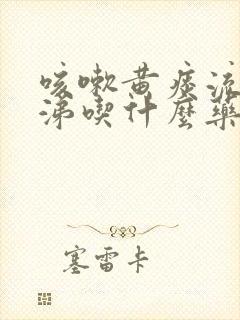 咳嗽黄痰流
涕喫什麼藥
塞雷卡